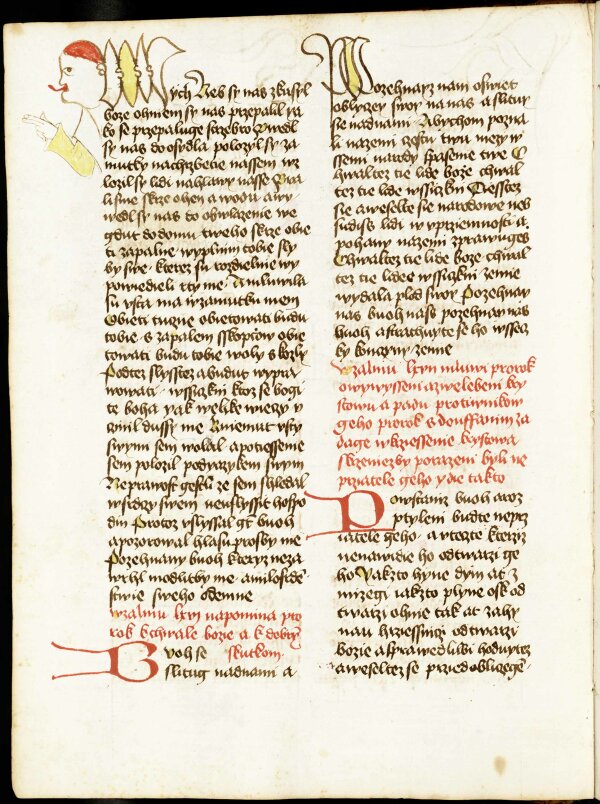 Wych Neb sy nas zkusyl
boze ohniem sy nas przepalil ya
ko se przepaluge strzebro Wwedl
sy nas do osydla polozyl sy za
mutky na chrzbecie nassem wz
lozil sy lidi na hlawy nasse Pra
li sme skrze ohen a wodu a wy
wedl sy nas to obwlazenie we
gdu t do domu tweho skrze obie
ti zapalne wyplnim tobie sly
by swe kterez su rozdielnie wy
powiedieli rty me A mluwila
su vsta ma w zamutku mem
Obieti tuczne obietowati budu
tobie s zapalem sskopow obie
towati budu tobie woly s kozly
Podte slysstez a budut wypra
wowati wssiczkni ktoz se bogi
te boha yak welike wieczy v
czinil dussy me K niemut vsty
swym sem wolal a powyssene
sem polozil pod yazykem swym
Neprawost gestli ze sem shledal
w srdczy swem nevslyssit hospo
din Protoz vslyssal gt buoh
a pozorowal hlasu prosby me
Pozehnany buoh kteryz neza
wrhl modlitby me a milosrde
stwie sweho ode mne
W zalmu lxvi napomina pro
rok k chwale bozie a k dobry
Buoh se skutkom
slitug nad nami a
Pozehnayz nam oswiet
oblyczey swoy na nas a slituy
sie nad nami Abychom pozna
li na zemi czestu twu mezy w
ssemi narody spasenie twe C
hwaltez tie lide boze chwal
tez tie lide wssiczkni Wesstez
sie a weselte sie narodowe neb
sudiss lidi w vprziemnosti a
pohany na zemi zprawugess
Chwaltez tie lide boze chwal
tez tie lidee wssiczkni zemie
wydala plod swoy Pozehnay
nas buoh nass pozehnay nas
buoh a strachuyte se ho wssecz
ky konczyny zemie
W zalmu lxvii mluwi prorok
o wywysseni a zwelebeni kry
stowu a padu protiwnikow
geho prorok s douffanim za
dage wzkriessenie krystowa
skrze niezby porazeni byli ne
przietele geho y die takto
Powstaniz buoh a roz
ptyleni budte neprz
ietele geho a vteczte kterziz
nenawidie ho od twarzi ge
ho Yakzto hyne dym at z
mizegi iakzto plyne wosk od
twarzi ohnie tak at zahy
nau hrziessnigi od twarzi
bozie a sprawedliwi hoduytez
a weseltez se przed obliczegem